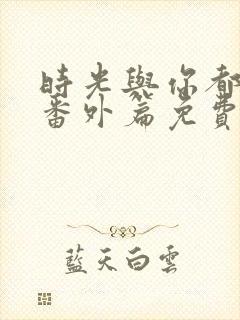 時光與你都
番外篇免費
藍天白雲